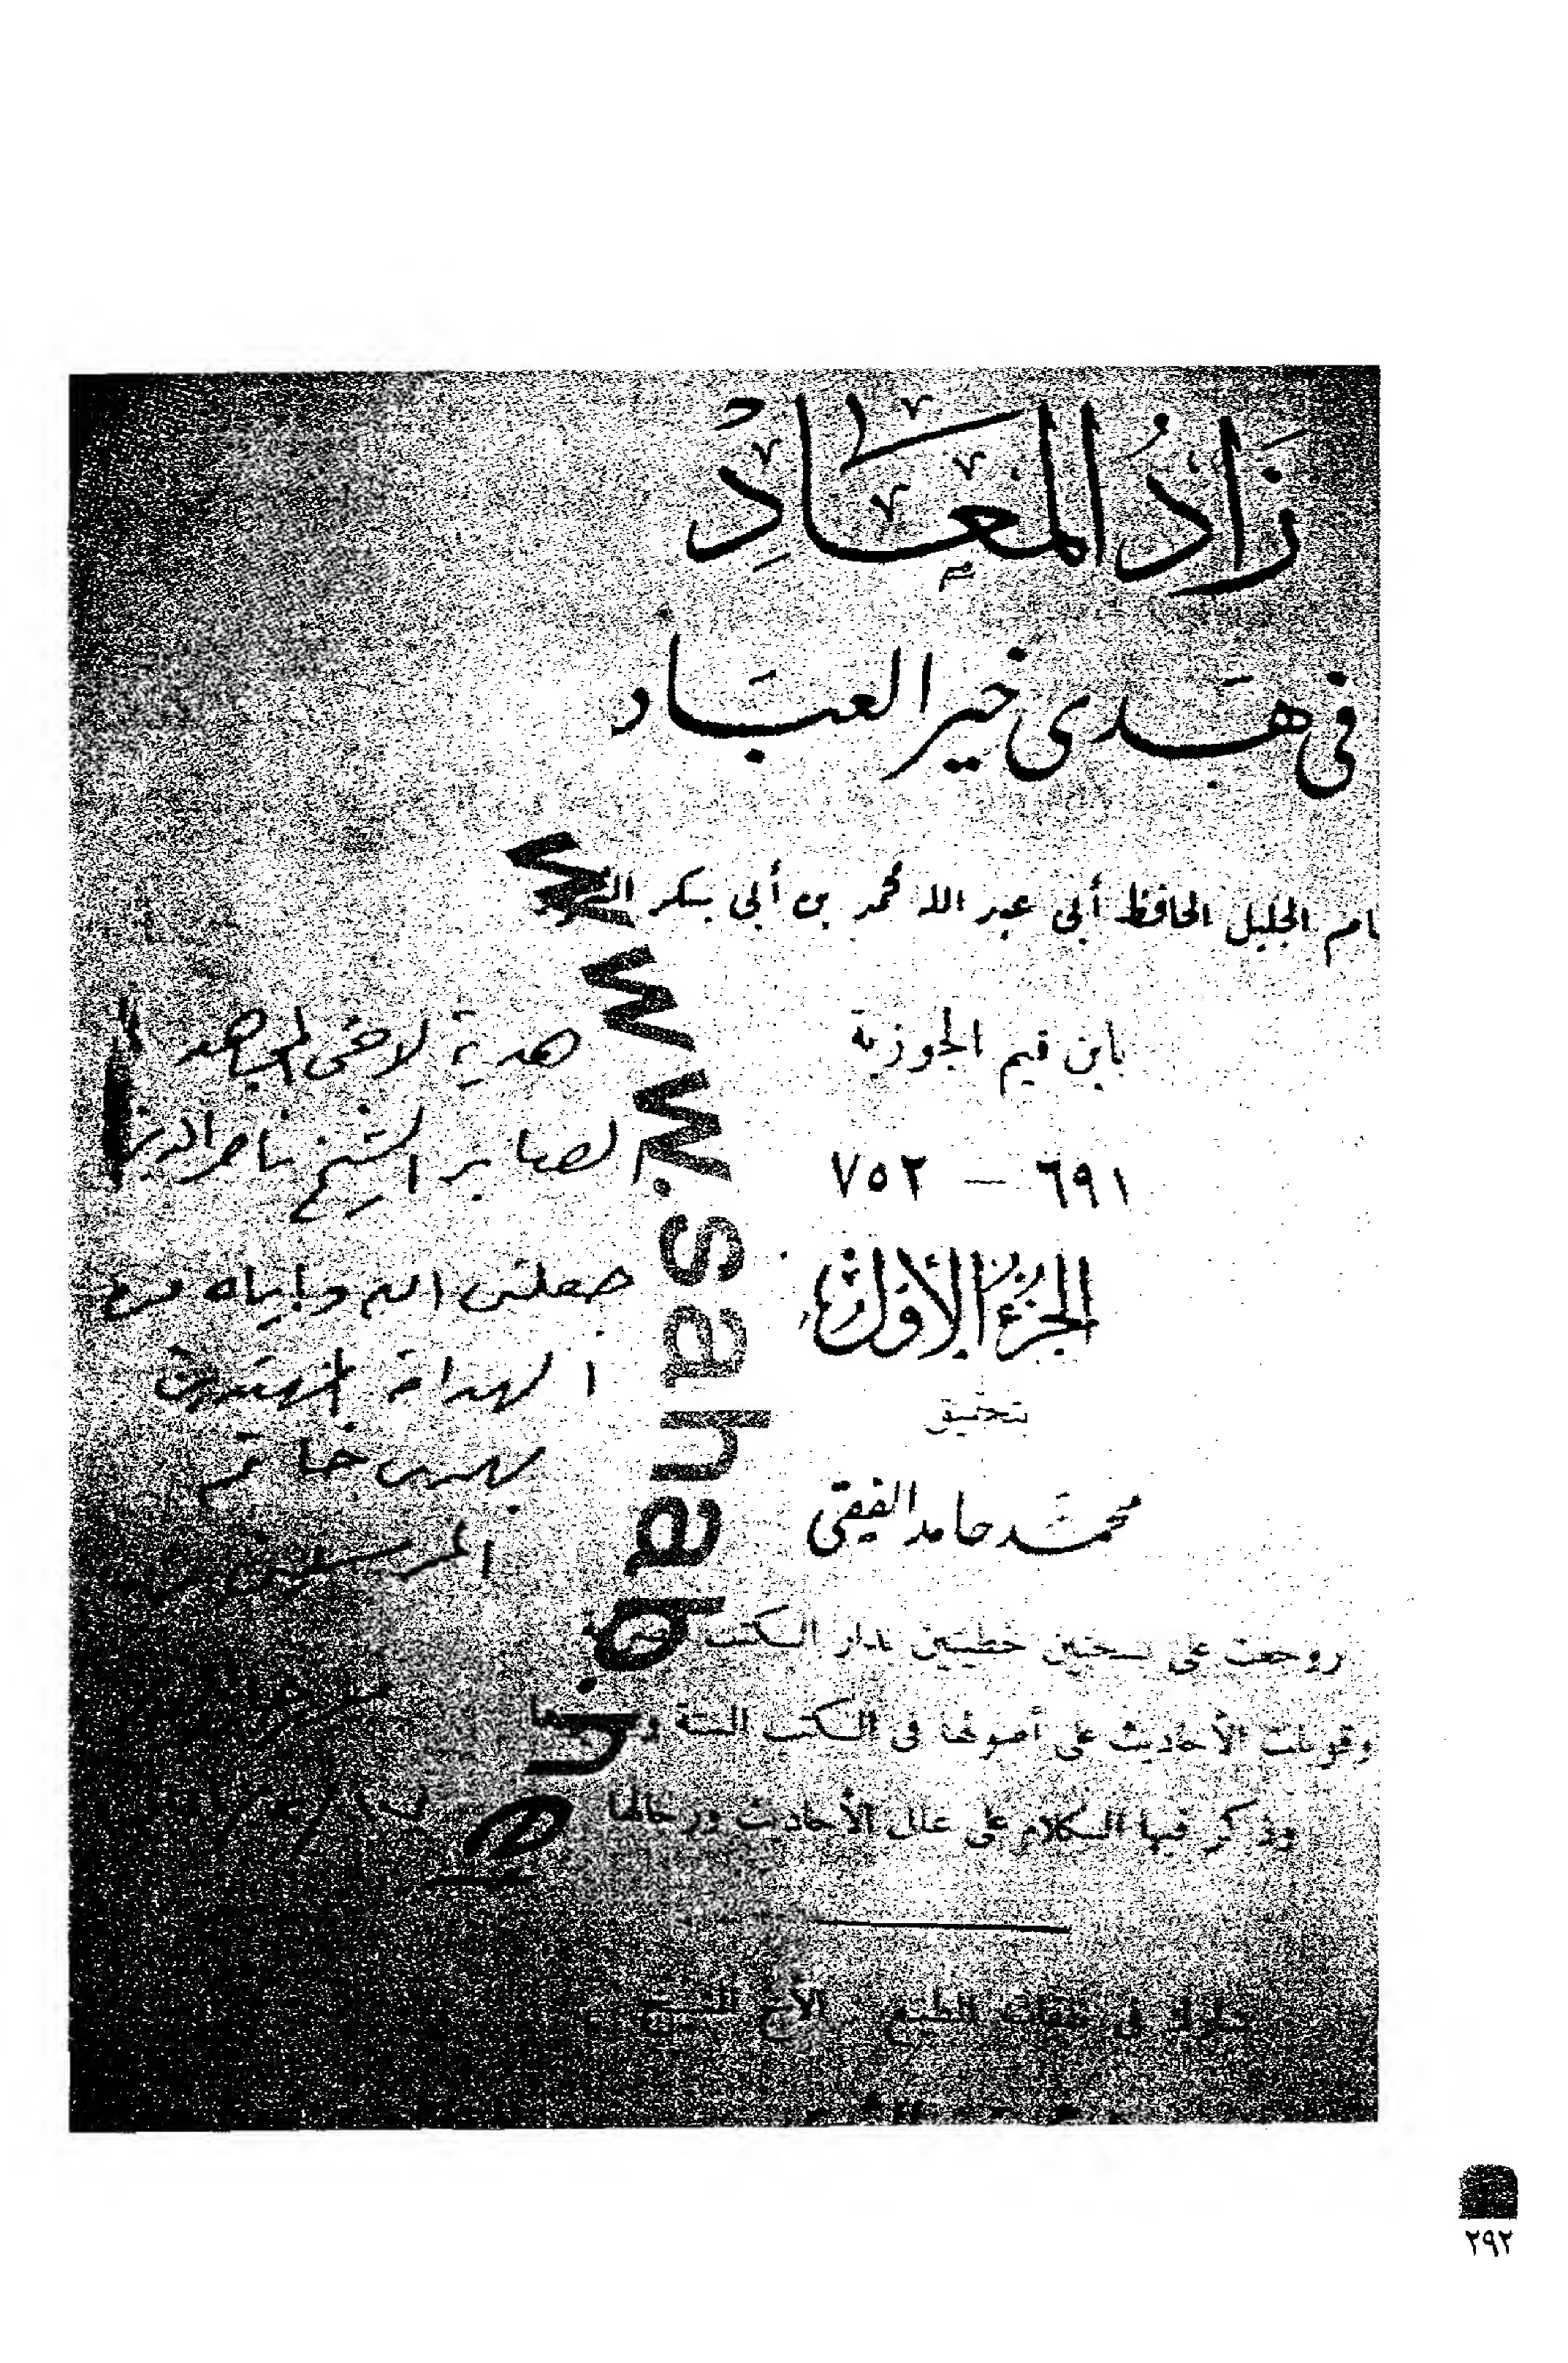 زَادُ المَعَادِ
في هَدى خير العبَاد
ام الجليل الحافظ أبى عبد الله محمد بن أبى بكر
بابن قيم الجوزية
٦٩١ — ٧٥٢
الجزءُ الأوّل
بتحقيق
محمَّد حامد الفقى
روجعت على نسختين خطيتين بدار الكتب
وقوبلت الأحاديث على أصولها فى الكتب الستة
وذكر فيها الكلام على علل الأحاديث ورجالها
هدية لأخى المجاهد
الصابر الشيخ ناصر الدين
جعلنى الله وإياه من
الهداة المهتدين
بهدى خاتم
المرسلين
www.sahab.ne
٢٩٢